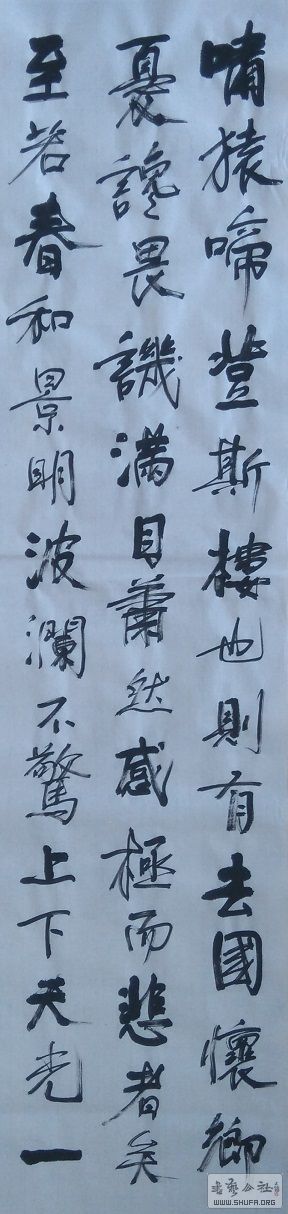 嘯猿啼登斯樓也則有去國懷鄉
憂讒畏譏滿目蕭然感極而悲者矣
至若春和景明波瀾不驚上下天光一
書藝公社
WWW.SHUFA.ORG